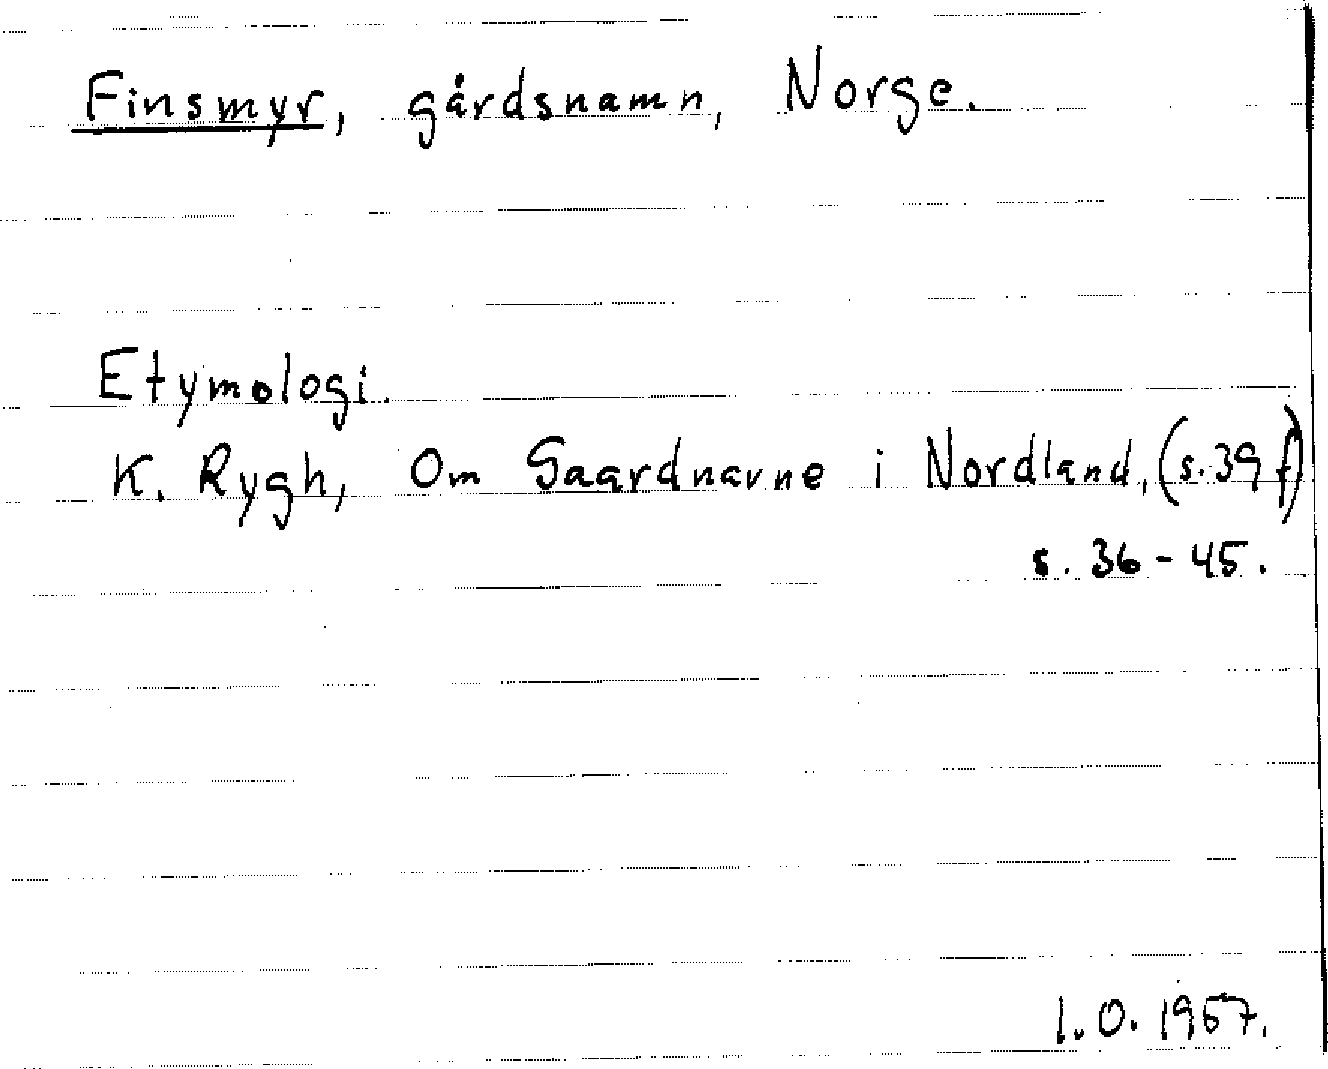 Finsmyr, gårdsnamn, Norge.
Etymologi.
K. Rygh, Om Gaardnavne i Nordland, (s. 39 f)
s. 36 - 45.
1.0. 1957.